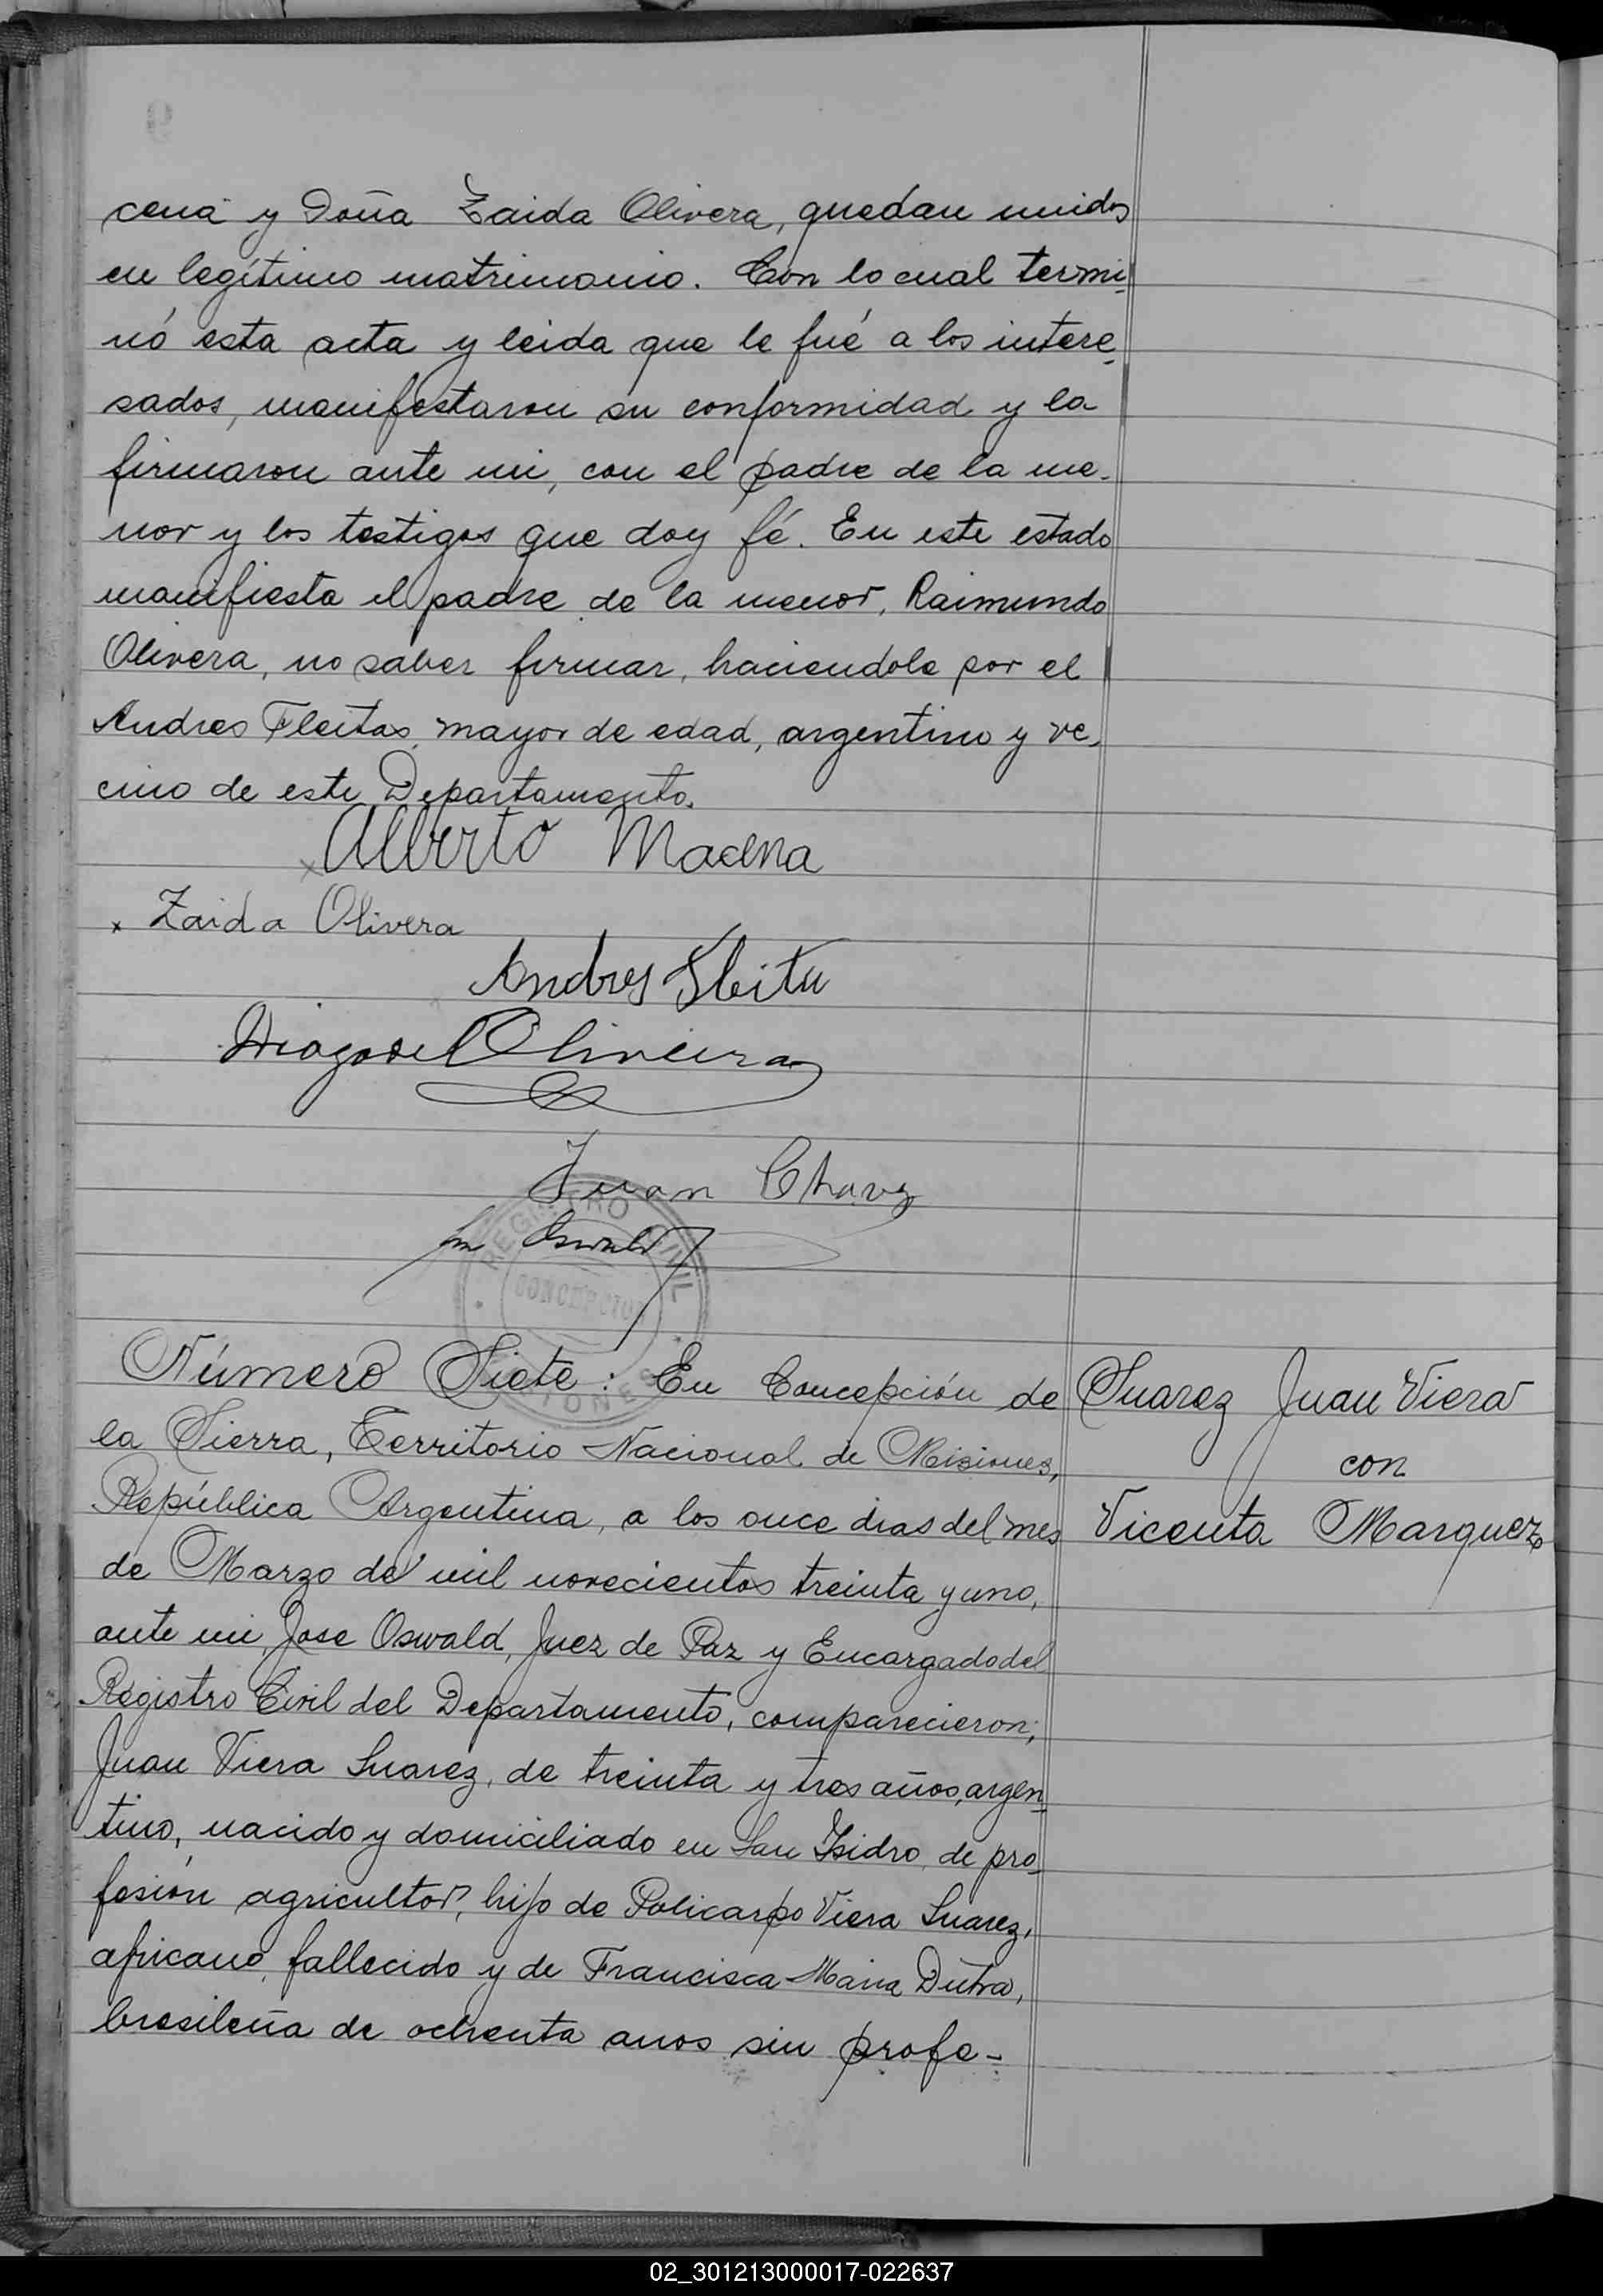 cena y Doña Zaida Olivera, quedan unidos
en legítimo matrimonio. Con lo cual termi-
nó esta acta y leida que le fué a los intere-
sados, manifestaron su conformidad y la
firmaron ante mi, con el padre de la me-
nor y los testigos que doy fé. En este estado
manifiesta el padre de la menor, Raimundo
Olivera, no saber firmar, haciendola por el
Andres Fleitas, mayor de edad, argentino y ve-
cino de este Departamento.
Alberto Macena
x Zaida Olivera
Andres Fleita
Oliveira
Juan Chavez
Oswald
REGISTRO CIVIL
CONCEPCION
MISIONES
Número Siete: En Concepción de
la Sierra, Territorio Nacional de Misiones,
República Argentina, a los once dias del mes
de Marzo de mil novecientos treinta y uno,
ante mi, Jose Oswald, Juez de Paz y Encargado del
Registro Civil del Departamento, comparecieron;
Juan Viera Suarez, de treinta y tres años, argen-
tino, nacido y domiciliado en San Isidro, de pro-
fesión agricultor, hijo de Policarpo Viera Suarez,
africano, fallecido y de Francisca Maria Dutra,
brasileña de ochenta anos sin profe-
Suarez Juan Viera
con
Vicenta Marquez
02_301213000017-022637